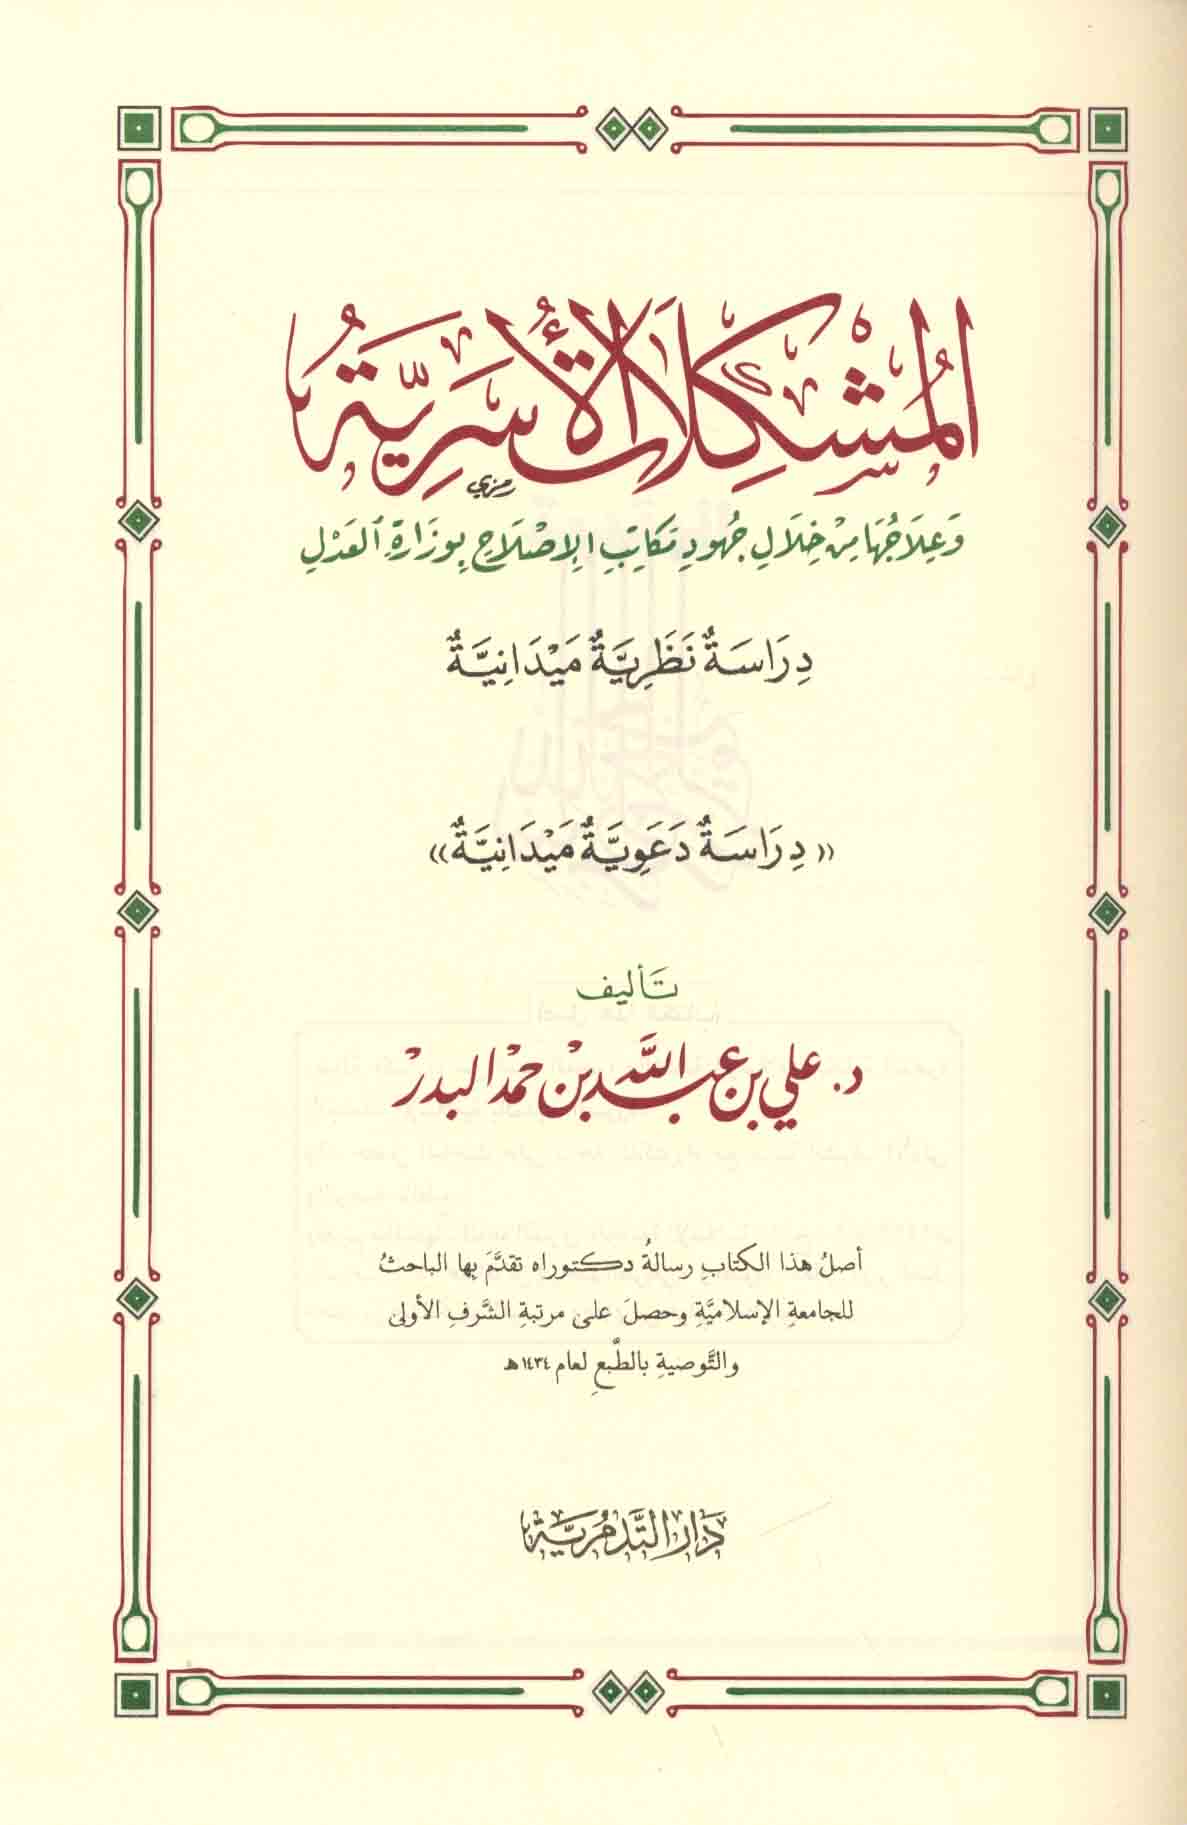 المُشْكِلَاتُ الأُسَرِيَّةُ
رمزي
وَعِلَاجُهَا مِنْ خِلَالِ جُهُودِ مَكَاتِبِ الإِصْلَاحِ بِوَزَارَةِ العَدْلِ
دِرَاسَةٌ نَظَرِيَّةٌ مَيْدَانِيَّةٌ
«دِرَاسَةٌ دَعَوِيَّةٌ مَيْدَانِيَّةٌ»
تَأليف
د. علي بن عبد اللَّه بن حمد البدر
أصلُ هذا الكتابِ رسالةُ دكتوراه تقدَّمَ بِها الباحثُ
للجامعةِ الإسلاميَّةِ وحصلَ على مرتبةِ الشَّرفِ الأولى
والتَّوصيةِ بالطَّبعِ لعام ١٤٣٤هـ
دَارُ التَّدْمُرِيَّة